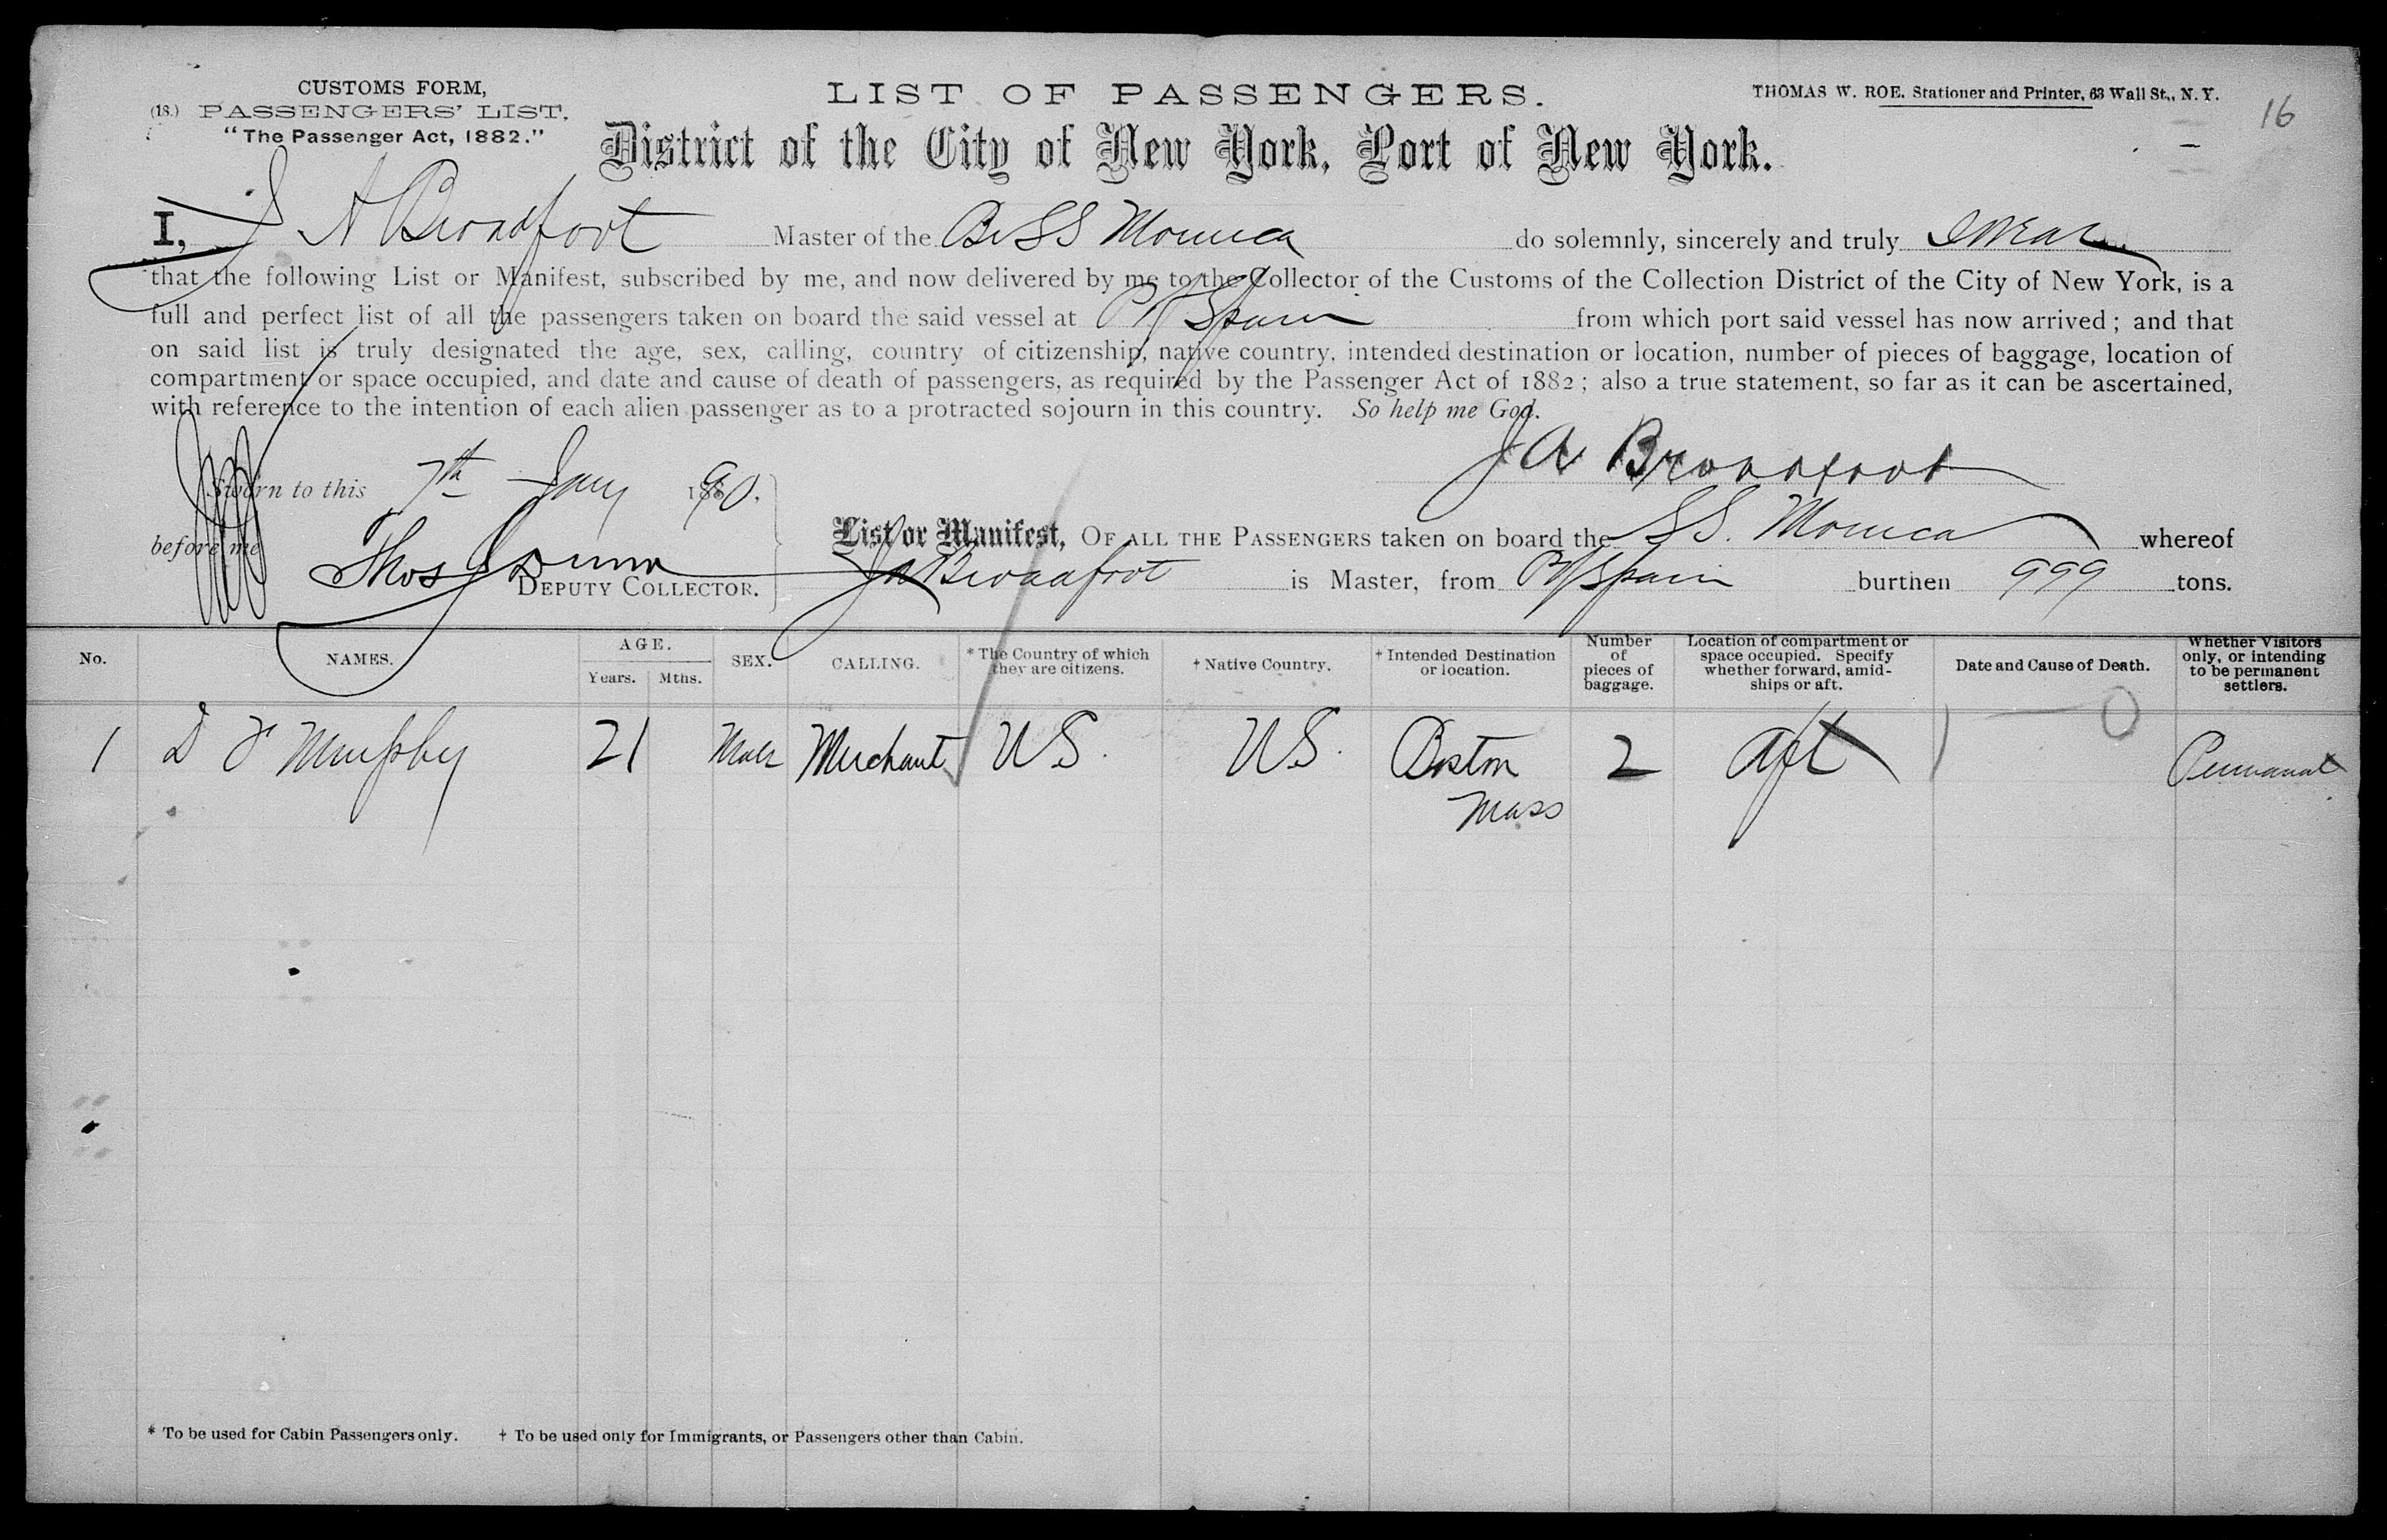 CUSTOMS FORM,
(18.) PASSENGERS' LIST.
"The Passenger Act, 1882."
LIST OF PASSENGERS.
THOMAS W. ROE. Stationer and Printer, 63 Wall St., N.Y.
16
District of the City of New York, Port of New York.
I, J A Broadfoot Master of the Br SS Monica do solemnly, sincerely and truly swear
that the following List or Manifest, subscribed by me, and now delivered by me to the Collector of the Customs of the Collection District of the City of New York, is a
full and perfect list of all the passengers taken on board the said vessel at Pt Spain from which port said vessel has now arrived; and that
on said list is truly designated the age, sex, calling, country of citizenship, native country, intended destination or location, number of pieces of baggage, location of
compartment or space occupied, and date and cause of death of passengers, as required by the Passenger Act of 1882; also a true statement, so far as it can be ascertained,
with reference to the intention of each alien passenger as to a protracted sojourn in this country. So help me God.
J A Broadfoot
Sworn to this 7th Jany 1890.
before me
Thos Dunn
DEPUTY COLLECTOR.
List or Manifest, OF ALL THE PASSENGERS taken on board the SS. Monica whereof
J A Broadfoot is Master, from Pt Spain burthen 999 tons.
No. NAMES. AGE. Years. Mths. SEX. CALLING. * The Country of which they are citizens. † Native Country. † Intended Destination or location. Number of pieces of baggage. Location of compartment or space occupied. Specify whether forward, amid-ships or aft. Date and Cause of Death. Whether Visitors only, or intending to be permanent settlers.
1 D F Murphy 21 Male Merchant U.S. U.S. Boston 2 Aft 1 — 0 Permanent
Mass
* To be used for Cabin Passengers only. † To be used only for Immigrants, or Passengers other than Cabin.